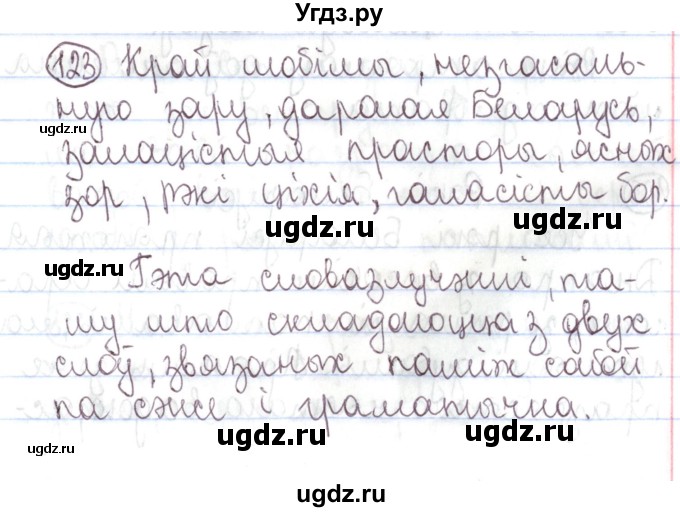 Угдз.ру
123 Край любімы, незгасаль-
ную зару, дарагая Беларусь,
залацістыя прасторы, ясных
зор, рэкі ціхія, галасісты бор.
ugdz.ru
ugdz.ru ugdz.ru
ugdz.ru
Гэта словазлучэнні, та-
му што складаюцца з двух
слоў, звязаных паміж сабой
па сэнсе і граматычна.
ugdz.ru ugdz.ru ugdz.ru
ugdz.ru